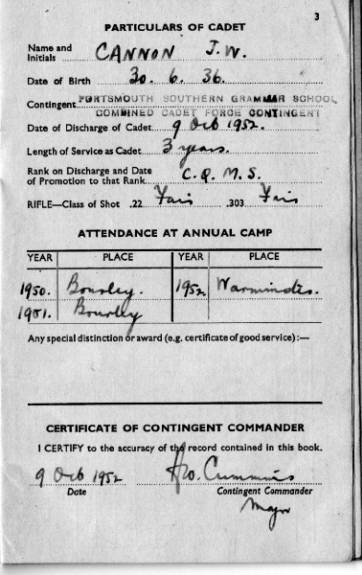 3
PARTICULARS OF CADET
Name and Initials CANNON J.W.
Date of Birth 30. 6. 36.
Contingent PORTSMOUTH SOUTHERN GRAMMAR SCHOOL
COMBINED CADET FORCE CONTINGENT
Date of Discharge of Cadet 9 Oct 1952.
Length of Service as Cadet 3 years.
Rank on Discharge and Date of Promotion to that Rank C.Q.M.S.
RIFLE—Class of Shot .22 Fair .303 Fair
ATTENDANCE AT ANNUAL CAMP
YEAR PLACE YEAR PLACE
1950. Bourley. 1952 Warminster.
1951. Bourley
Any special distinction or award (e.g. certificate of good service):—
CERTIFICATE OF CONTINGENT COMMANDER
I CERTIFY to the accuracy of the record contained in this book.
9 Oct 1952 Cummins
Date Contingent Commander
Major